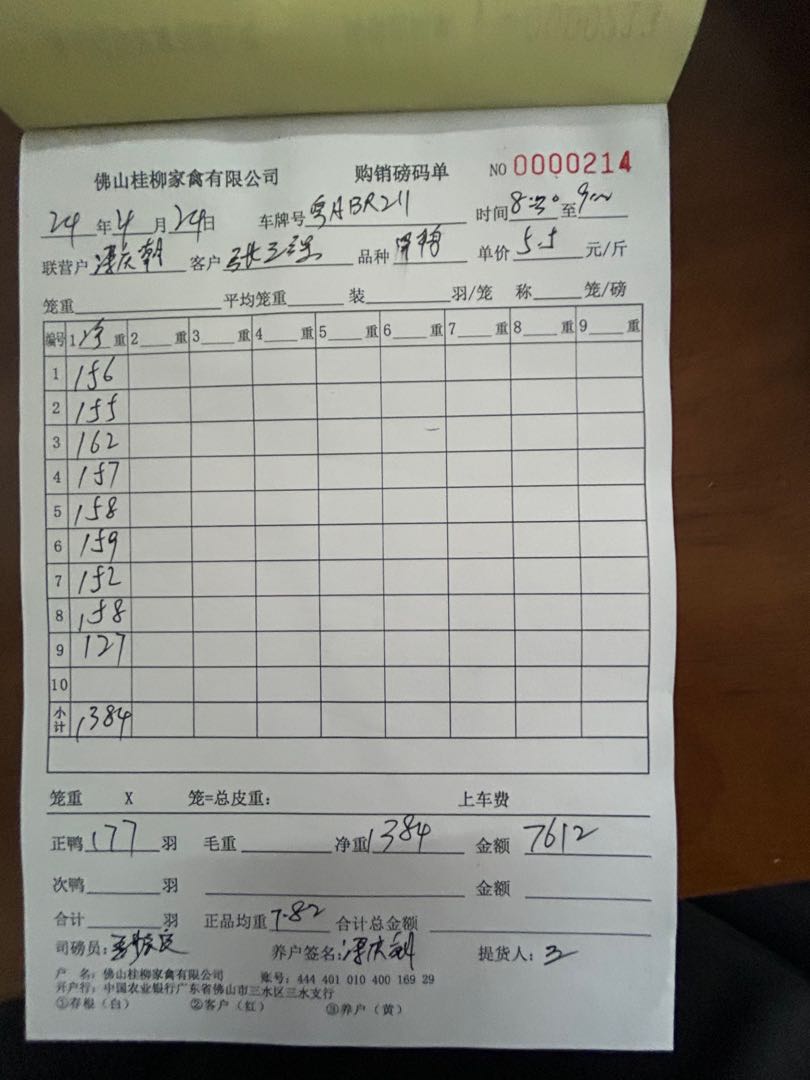 佛山桂柳家禽有限公司 购销磅码单 NO 0000214
24年4月24日 车牌号粤ABR211 时间8:30至9:00
联营户 客户 品种 单价5.5元/斤
笼重 平均笼重 装 羽/笼 称 笼/磅
编号 1净重 2 重 3 重 4 重 5 重 6 重 7 重 8 重 9 重
1 156
2 155
3 162
4 157
5 158
6 159
7 152
8 158
9 127
10
小计 1384
笼重 X 笼=总皮重: 上车费
正鸭177羽 毛重 净重1384 金额7612
次鸭 羽 金额
合计 羽 正品均重7.82 合计总金额
司磅员: 养户签名: 提货人:
户 名: 佛山桂柳家禽有限公司 账号: 444 401 010 400 169 29
开户行: 中国农业银行广东省佛山市三水区三水支行
①存根(白) ②客户(红) ③养户(黄)